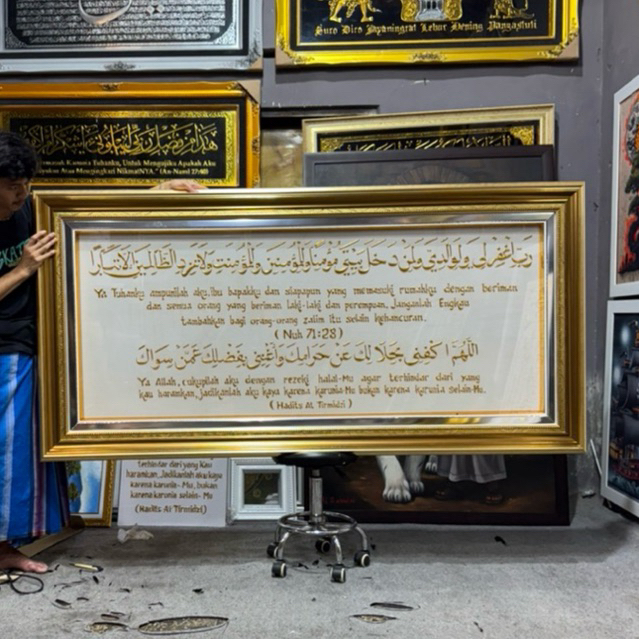 Suro Diro Jayaningrat Lebur Dening Pangastuti
هذا من فضل ربي ليبلوني أأشكر أم أكفر
Termasuk Karunia Tuhanku, Untuk Mengujiku Apakah Aku
Atau Mengingkari NikmatNYA." (An-Naml 27:40)
رب اغفر لي ولوالدي ولمن دخل بيتي مؤمنا وللمؤمنين والمؤمنت ولا تزد الظالمين إلا تبارا
Ya Tuhanku ampunilah aku, ibu bapakku dan siapapun yang memasuki rumahku dengan beriman
dan semua orang yang beriman laki-laki dan perempuan, Janganlah Engkau
tambahkan bagi orang-orang zalim itu selain kehancuran.
( Nuh 71:28 )
اللهم اكفني بحلالك عن حرامك واغنني بفضلك عمن سواك
Ya Allah, cukupilah aku dengan rezeki halal-Mu agar terhindar dari yang
kau haramkan, jadikanlah aku kaya karena karunia-Mu bukan karena karunia selain-Mu.
( Hadits At Tirmidzi )
terhindar dari yang Kau
haramkan, Jadikanlah aku kaya
karena karunia-Mu, bukan
karena karunia selain-Mu
(Hadits At Tirmidzi)